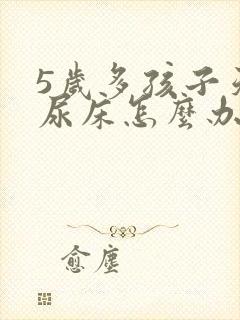 5歲多孩子
尿床怎麼办
愈塵